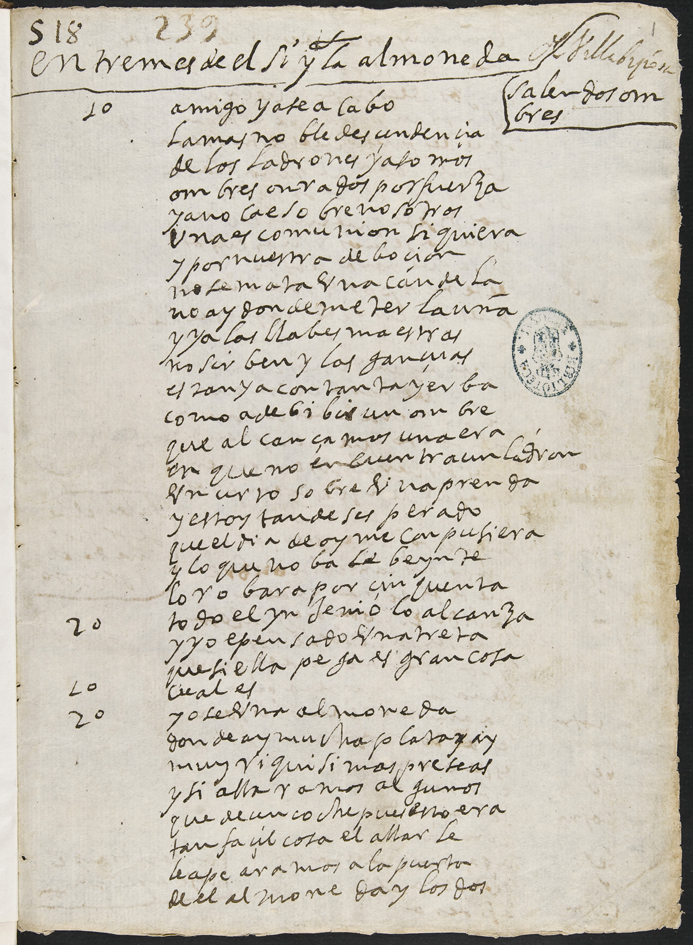 S 18 239 1
entremes de el si y la almoneda de Villabiçiosa
salen dos om
bres
1o amigo ya se a cabo
la mas noble descendençia
de los ladrones ya somos
ombres onrados por fuerza
ya no cae sobre nosotros
una escomunion siquiera
y por nuestra deboçion
no se mata una candela
no ay donde meter la uña
y ya las llabes maestras
no sirben y las gançuas
estan ya con tanta yerba
como a de bibir un ombre
que alcançamos una era
en que no encuentra un ladron
un urto sobre una prenda
y estoy tan desesperado
que el dia de oy me conpusiera
y lo que no bale beynte
lo robara por çinquenta
2o todo el ynjenio lo alcanza
y yo e pensado una treta
que si ella pega es gran cosa
1o cual es
2o yo se una almoneda
donde ay mucha plata y ay
muy riquisimas preseas
y si allaramos algunos
que de un coche puesto era
tan façil cosa el allarle
le apearamos a la puerta
de el almoneda y los dos
BIBLIOTECA